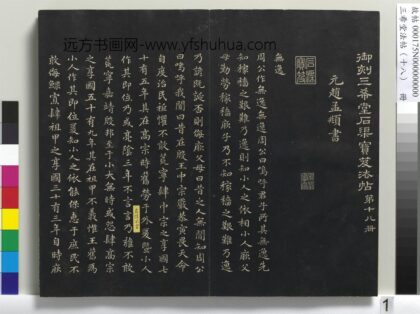 远方书画网-www.yfshuhua.com
故帖 000175N000000000
三希堂法帖(十八) 冊
御刻三希堂石渠寶笈法帖 第十八冊
元趙孟頫書
無逸
周公作無逸無逸周公曰嗚呼君子所其無逸先
知稼穡之艱難乃逸則知小人之依相小人厥父
母勤勞稼穡厥子乃不知稼穡之艱難乃逸
乃諺既誕否則侮厥父母曰昔之人無聞知周公
曰嗚呼我聞曰昔在殷王中宗嚴恭寅畏天命
自度治民祗懼不敢荒寧肆中宗之享國七
十有五年其在高宗時舊勞于外爰暨小人
作其即位乃或亮陰三年不言言乃雍不敢
荒寧嘉靖殷邦至于小大無時或怨肆高宗
之享國五十有九年其在祖甲不義惟王舊為
小人作其即位爰知小人之依能保惠于庶民不
敢侮鰥寡肆祖甲之享國三十有三年自時厥
1